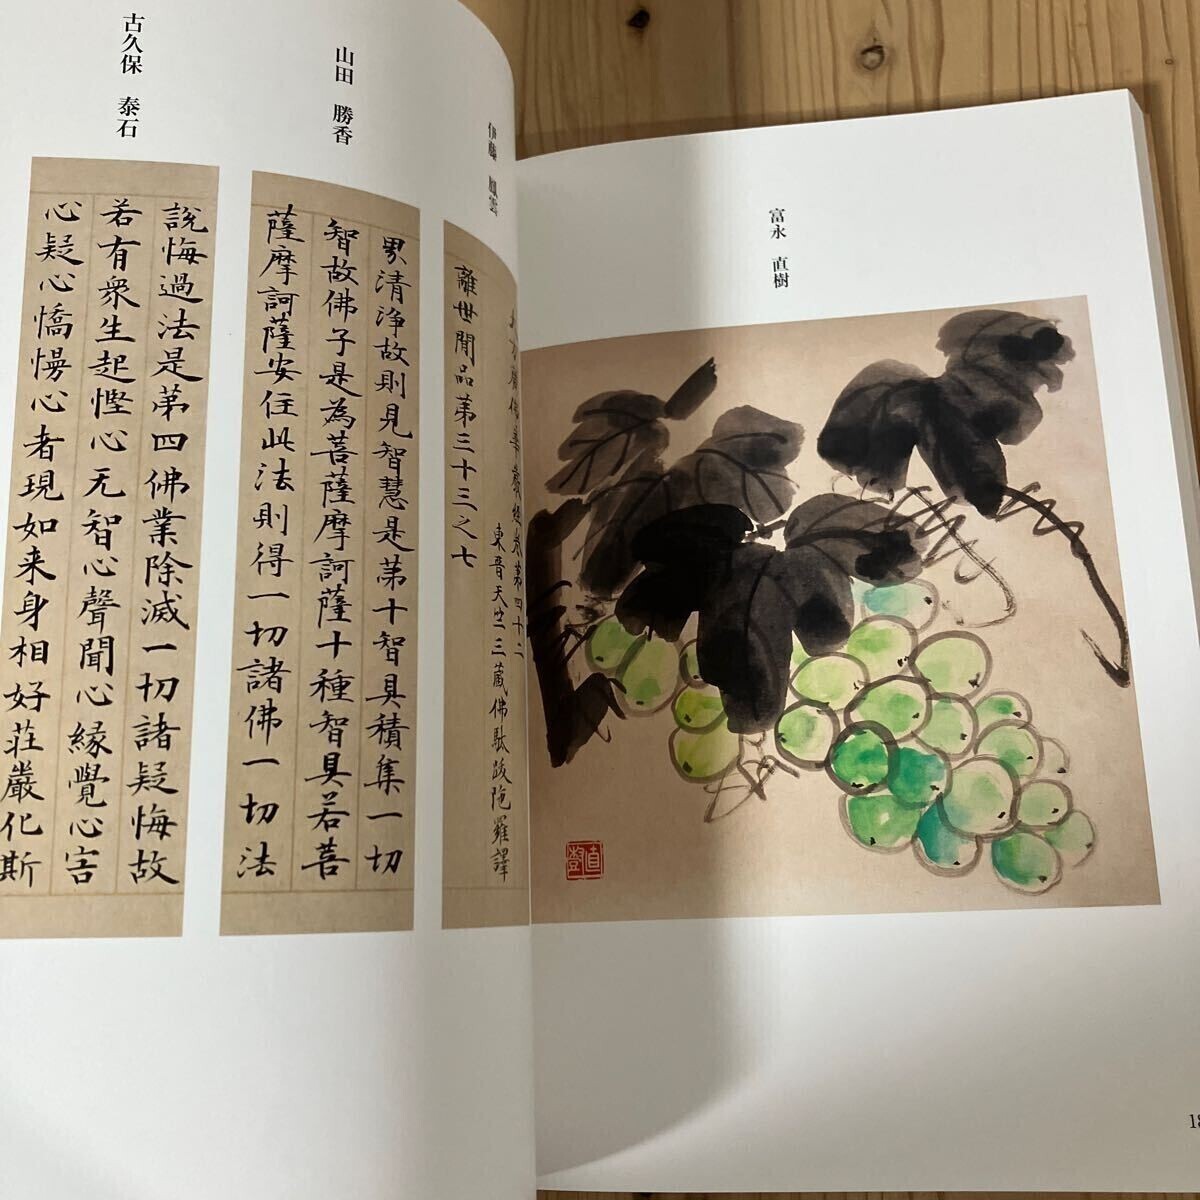 富永 直樹
直樹
伊藤 鳳雲
大方廣佛華嚴經卷第四十二
東晉天竺三藏佛馱跋陁羅譯
離世間品第三十三之七
山田 勝香
界清淨故則見智慧是第十智具積集一切
智故佛子是為菩薩摩訶薩十種智具若菩
薩摩訶薩安住此法則得一切諸佛一切法
古久保 泰石
說悔過法是第四佛業除滅一切諸疑悔故
若有衆生起慳心无智心聲聞心緣覺心害
心疑心憍慢心者現如来身相好莊嚴化斯